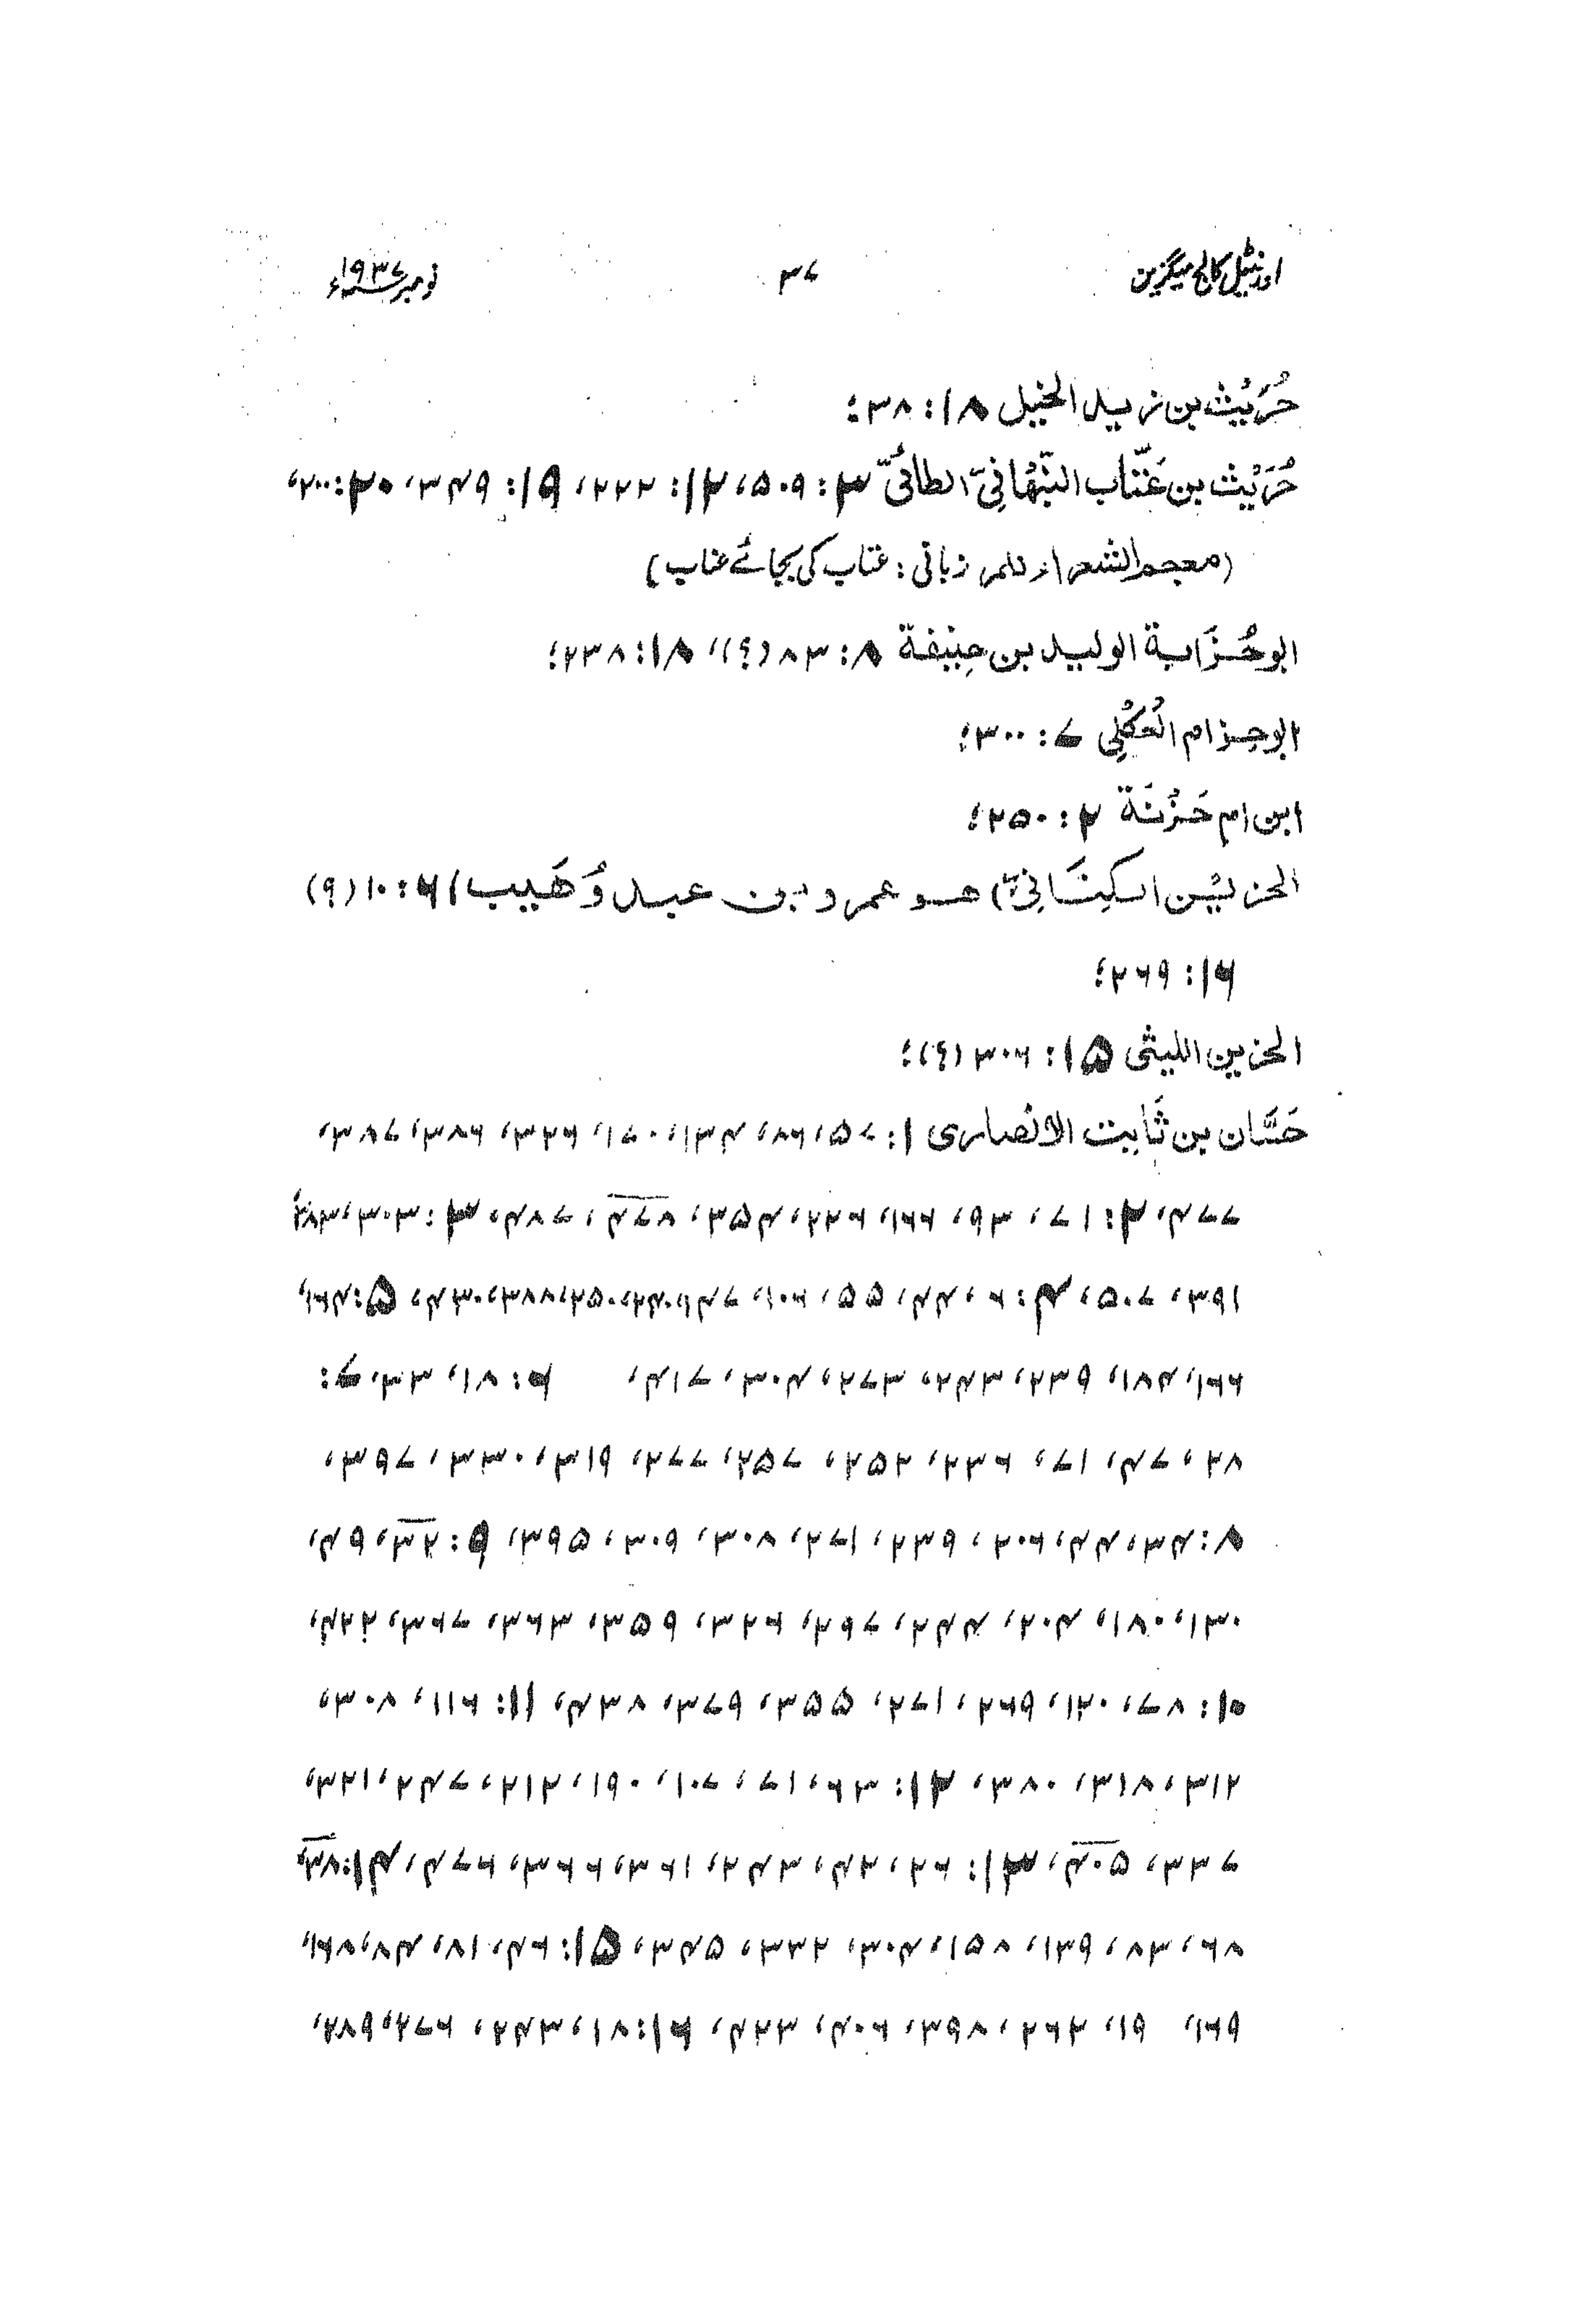 اورنٹیل کالج میگزین ۳۷ نومبر ۱۹۳۷ء
حُرَیْث بن زید الخیل ۱۸: ۳۸؛
حُرَیْث بن عَنّاب النَّبْهَانِیّ الطائیّ ۳: ۵۰۹، ۱۲: ۲۲۲، ۱۹: ۳۴۹، ۲۰: ۲۰۰،
(معجم الشعراء للمرزبانی: عتاب کی بجائے عناب)
ابو حُزَابة الولید بن حنیفة ۸: ۸۳ (؟)، ۱۸: ۲۳۸؛
ابو حِزام العُکْلِی ۷: ۳۰۰؛
ابن ام حَزْنَة ۲: ۲۵۰؛
الحزیْن الکِنَانِیّ) هو عمرو بن عبد وُهَیب / ۶: ۱۰ (۹)
۱۶: ۲۶۹؛
الحزین اللیثی ۱۵: ۳۰۶ (؟)؛
حَسَّان بن ثَابِت الانْصاری ۱: ۵۷، ۸۶، ۱۳۴، ۱۷۰، ۳۲۶، ۳۸۶، ۳۸۷،
۴۷۷، ۲: ۷۱، ۹۳، ۱۶۶، ۲۲۶، ۳۵۴، ۴۷۸، ۴۸۷، ۳: ۳۰۳، ۳۸۲،
۳۹۱، ۵۰۷، ۴: ۶، ۴۴، ۵۵، ۱۰۶، ۱۴۷، ۲۴۰، ۲۵۰، ۳۸۸، ۴۳۰، ۵: ۱۶۴،
۱۶۶، ۱۸۴، ۲۳۹، ۲۴۳، ۲۷۳، ۳۰۴، ۴۱۷، ۶: ۱۸، ۳۳، ۷:
۲۸، ۴۷، ۷۱، ۲۳۶، ۲۵۲، ۲۵۷، ۲۷۷، ۳۱۹، ۳۳۰، ۳۹۷،
۸: ۳۴، ۴۴، ۲۰۶، ۲۳۹، ۲۷۱، ۳۰۸، ۳۰۹، ۳۹۵، ۹: ۳۲، ۴۹،
۱۳۰، ۱۸۰، ۲۰۴، ۲۴۴، ۲۶۷، ۳۲۶، ۳۵۹، ۳۶۳، ۳۶۷، ۴۲۲،
۱۰: ۷۸، ۱۲۰، ۲۶۹، ۲۷۱، ۳۵۵، ۳۷۹، ۴۳۸، ۱۱: ۱۱۶، ۳۰۸،
۳۱۲، ۳۱۸، ۳۸۰، ۱۲: ۶۳، ۷۱، ۱۰۷، ۱۹۰، ۲۱۲، ۲۴۷، ۳۲۱،
۳۳۷، ۴۰۵، ۱۳: ۲۶، ۴۲، ۲۴۳، ۳۶۱، ۳۶۲، ۴۷۶، ۱۴: ۳۸،
۶۸، ۸۳، ۱۳۹، ۱۵۸، ۳۰۴، ۳۳۲، ۳۴۵، ۱۵: ۴۶، ۸۱، ۸۴، ۱۶۸،
۱۶۹، ۱۹، ۲۶۲، ۳۹۸، ۴۰۶، ۴۲۳، ۱۶: ۱۸، ۲۴۳، ۲۷۶، ۲۸۹،